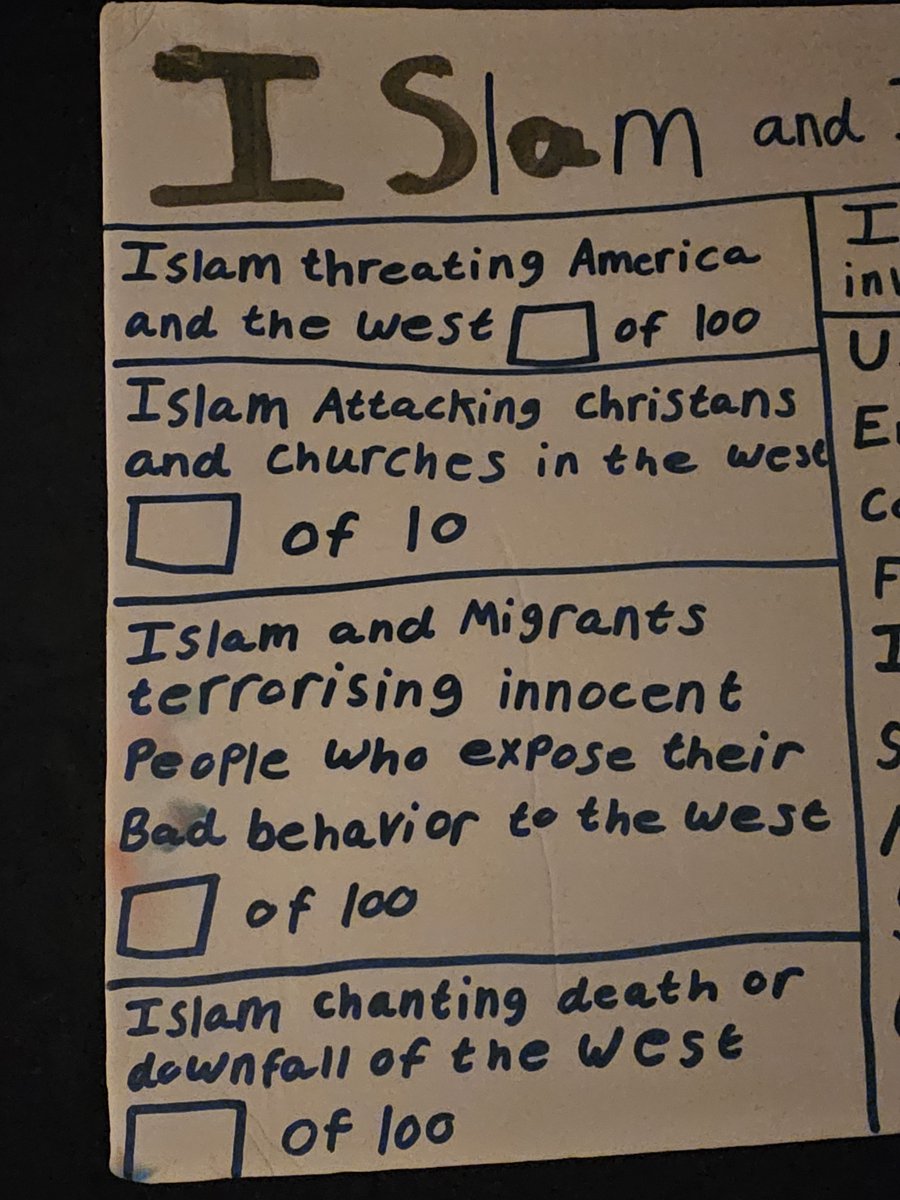 ISlam and
Islam threating America
and the west of 100
Islam Attacking christans
and churches in the west
of 10
Islam and Migrants
terrorising innocent
People who expose their
Bad behavior to the west
of 100
Islam chanting death or
downfall of the west
of 100
I
inv
U.